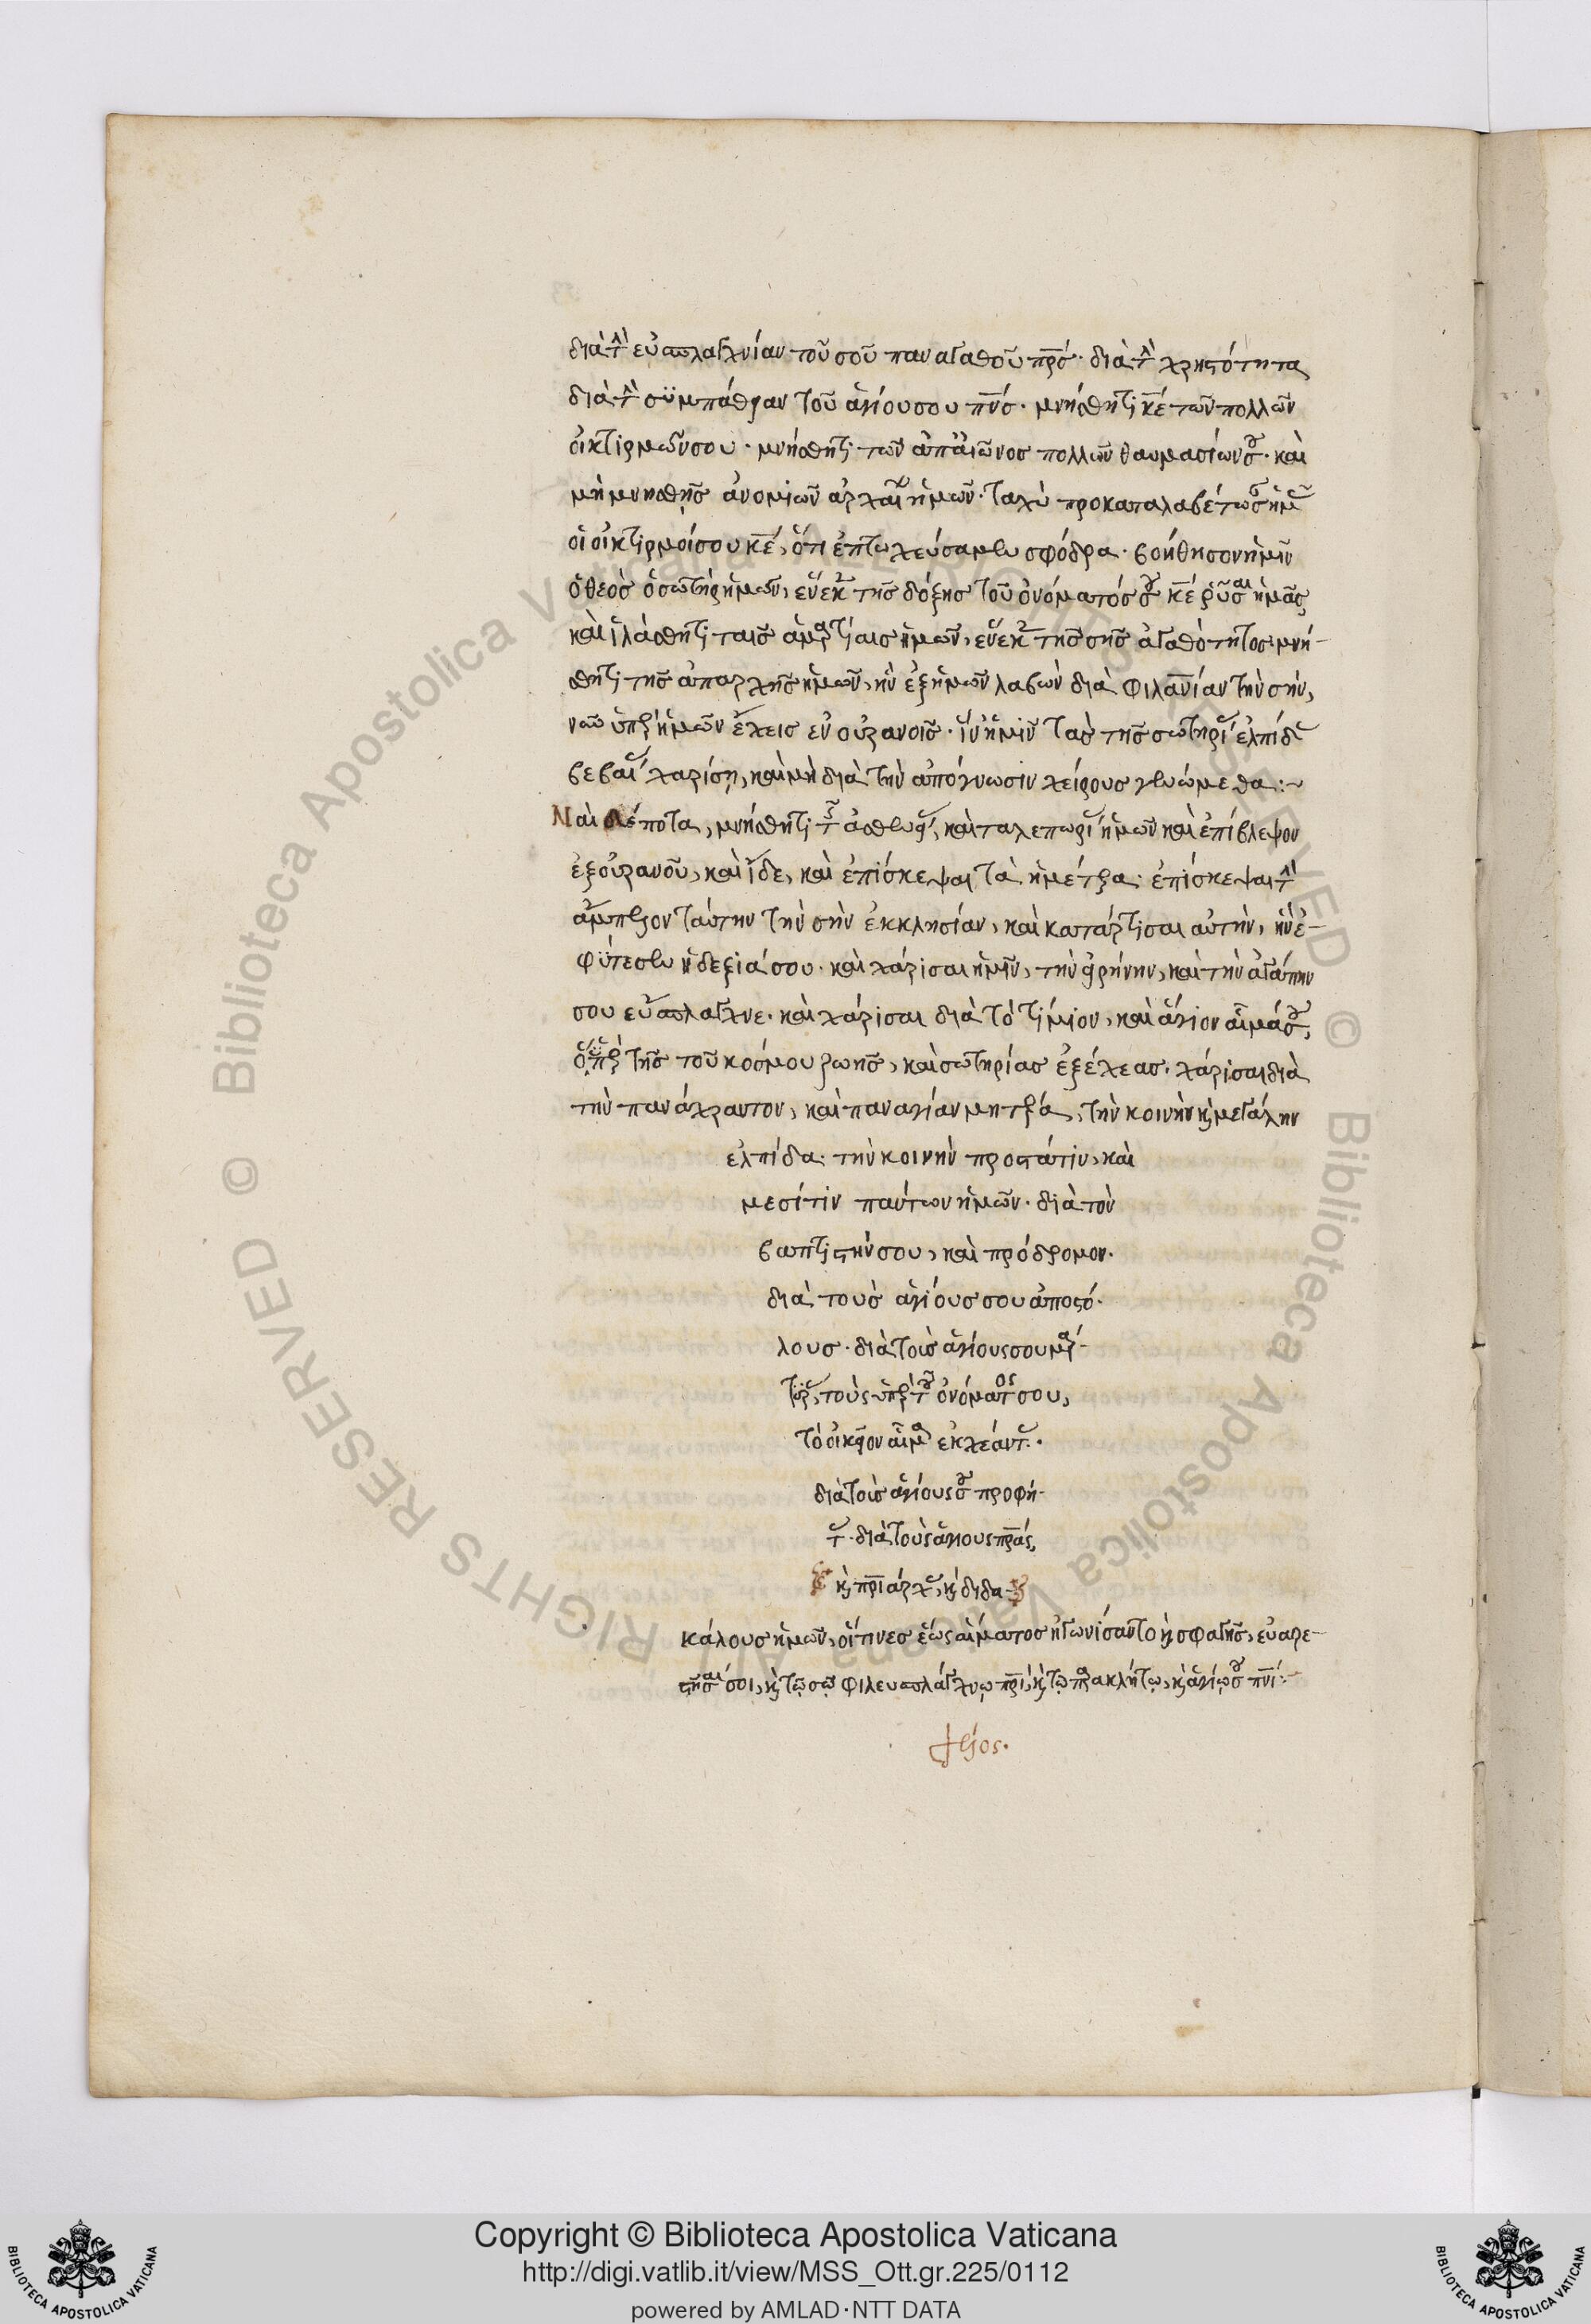 διὰ τὴν εὐσπλαγχνίαν τοῦ σοῦ παναγάθου πρ̅σ́· διὰ τὴν χρηστότητα
διὰ τὴν συμπάθειαν τοῦ ἁγίου σου πν̅σ́· μνήσθητι κ̅ε̅ τῶν πολλῶν
οἰκτιρμῶν σου· μνήσθητι τῶν ἀπ' αἰῶνος πολλῶν θαυμασίων σου· καὶ
μὴ μνησθῇς ἀνομιῶν ἀρχαίων ἡμῶν· ταχὺ προκαταλαβέτωσαν ἡμᾶς
οἱ οἰκτιρμοί σου κ̅ε̅, ὅτι ἐπτωχεύσαμεν σφόδρα· βοήθησον ἡμῖν
ὁ θεὸς ὁ σωτὴρ ἡμῶν, ἕνεκα τῆς δόξης τοῦ ὀνόματός σου κ̅ε̅ ῥῦσαι ἡμᾶς
καὶ ἱλάσθητι ταῖς ἁμαρτίαις ἡμῶν, ἕνεκα τῆς σῆς ἀγαθότητος· μνή-
σθητι τῆς ἀπαρχῆς ἡμῶν, ἣν ἐξ ἡμῶν λαβὼν διὰ φιλανίαν τὴν σὴν,
ὑπὲρ ἡμῶν ἔχεις ἐν οὐρανοῖς· ἵν' ἡμῖν τὰς τῆς σωτηρίας ἐλπίδας
βεβαίας χαρίσῃ, καὶ μὴ διὰ τὴν ἀπόγνωσιν χείρους γενώμεθα:~
Ναὶ δέσποτα, μνήσθητι τῆς ἀσθενείας, καὶ ταλεπωρίας ἡμῶν καὶ ἐπίβλεψον
ἐξ οὐρανοῦ, καὶ ἴδε, καὶ ἐπίσκεψαι τὰ ἡμέτερα· ἐπίσκεψαι τὴν
ἄμπελον ταύτην τὴν σὴν ἐκκλησίαν, καὶ κατάρτισαι αὐτὴν, ἣν ἐ-
φύτευσεν ἡ δεξιά σου· καὶ χάρισαι ἡμῖν, τὴν εἰρήνην, καὶ τὴν ἀγάπην
σου εὔσπλαγχνε· καὶ χάρισαι διὰ τὸ τίμιον, καὶ ἅγιον αἷμά σου,
ὅπερ ὑπὲρ τῆς τοῦ κόσμου ζωῆς, καὶ σωτηρίας ἐξέχεας· χάρισαι διὰ
τὴν πανάχραντον, καὶ παναγίαν μητέρα, τὴν κοινὴν καὶ μεγάλην
ἐλπίδα· τὴν κοινὴν προστάτιν, καὶ
μεσίτιν πάντων ἡμῶν· διὰ τὸν
βαπτιστήν σου, καὶ πρόδρομον·
διὰ τοὺς ἁγίους σου ἀποστό-
λους· διὰ τοὺς ἁγίους σου μάρ-
τυρας, τοὺς ὑπὲρ τοῦ ὀνόματός σου,
τὸ οἰκεῖον αἷμα ἐκχέαντας·
διὰ τοὺς ἁγίους σου προφή-
τας· διὰ τοὺς ἁγίους πρ̅ας,
καὶ πριάρχας, καὶ διδα-
κάλους ἡμῶν, οἵτινες ἕως αἵματος ἠγωνίσαντο καὶ σφαγῆς, εὐαρε-
στῆσαί σοι, καὶ τῷ σῷ φιλευσπλάγχνῳ πρ̅ι, καὶ τῷ παρακλήτῳ, καὶ ἁγίῳ σου πν̅ι:
τέλος.
Copyright © Biblioteca Apostolica Vaticana
http://digi.vatlib.it/view/MSS_Ott.gr.225/0112
powered by AMLAD·NTT DATA